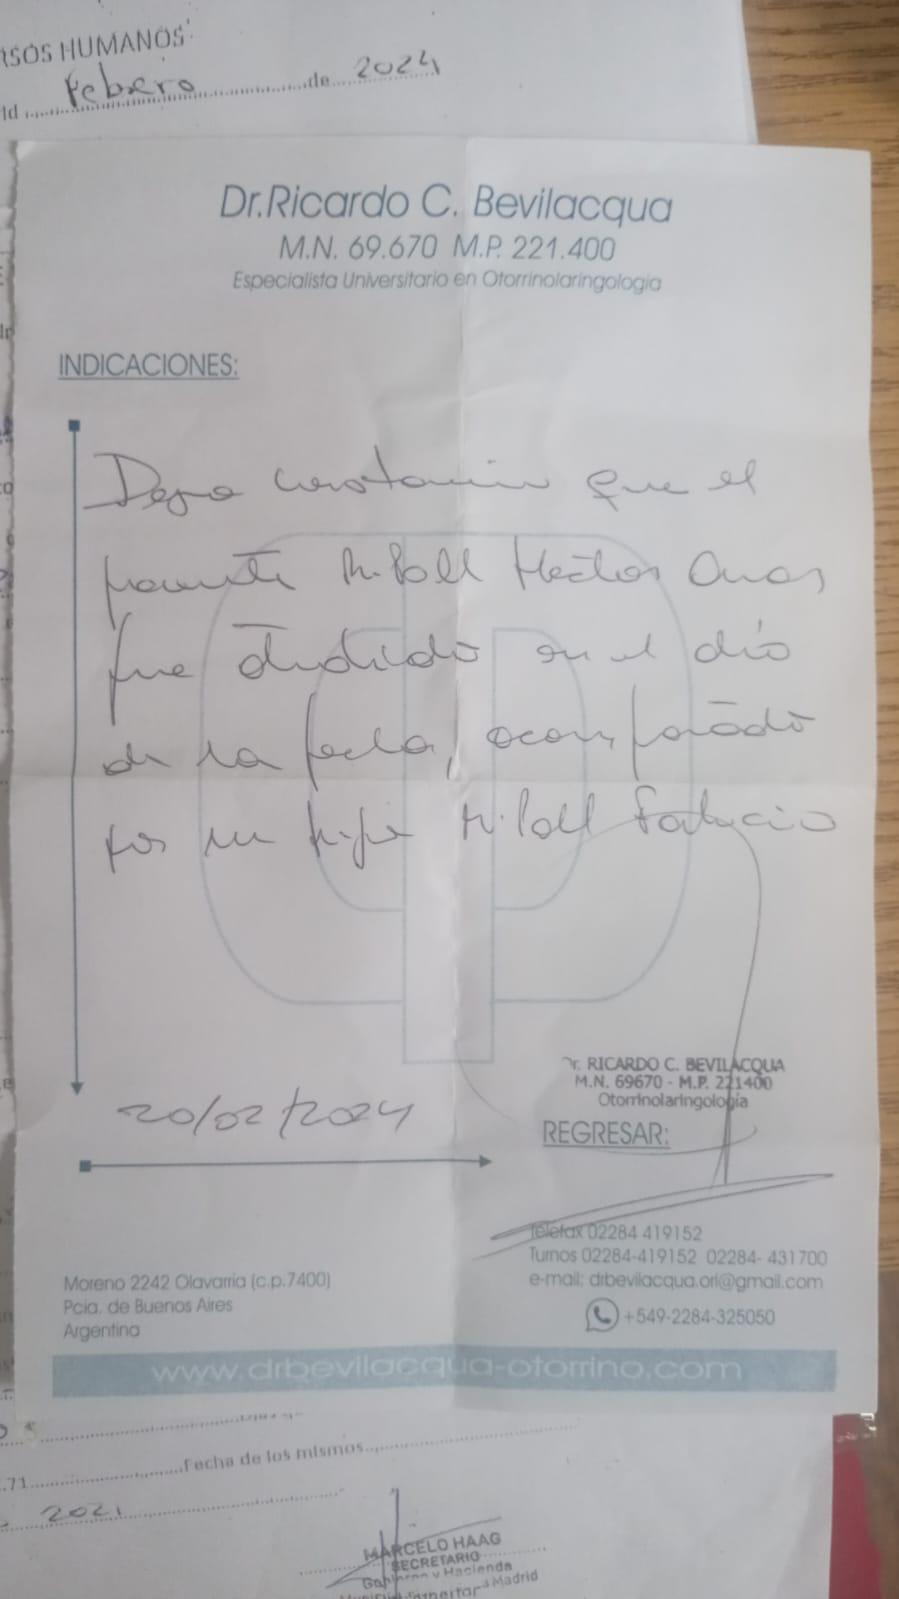 RSOS HUMANOS
ld Febrero de 2024
Dr. Ricardo C. Bevilacqua
M.N. 69.670 M.P. 221.400
Especialista Universitario en Otorrinolaringología
INDICACIONES:
Dejo constancia que el
paciente Ripoll Hector Omar
fue atendido en el día
de la fecha, acompañado
por su hijo Ripoll Fabricio
20/02/2024
Dr. RICARDO C. BEVILACQUA
M.N. 69670 - M.P. 221400
Otorrinolaringología
REGRESAR:
Telefax 02284 419152
Turnos 02284-419152 02284- 431700
e-mail: drbevilacqua.orl@gmail.com
+549-2284-325050
Moreno 2242 Olavarria (c.p.7400)
Pcia. de Buenos Aires
Argentina
www.drbevilacqua-otorrino.com
.71 Fecha de los mismos
2021
MARCELO HAAG
SECRETARIO
Gobierno y Hacienda
Madrid